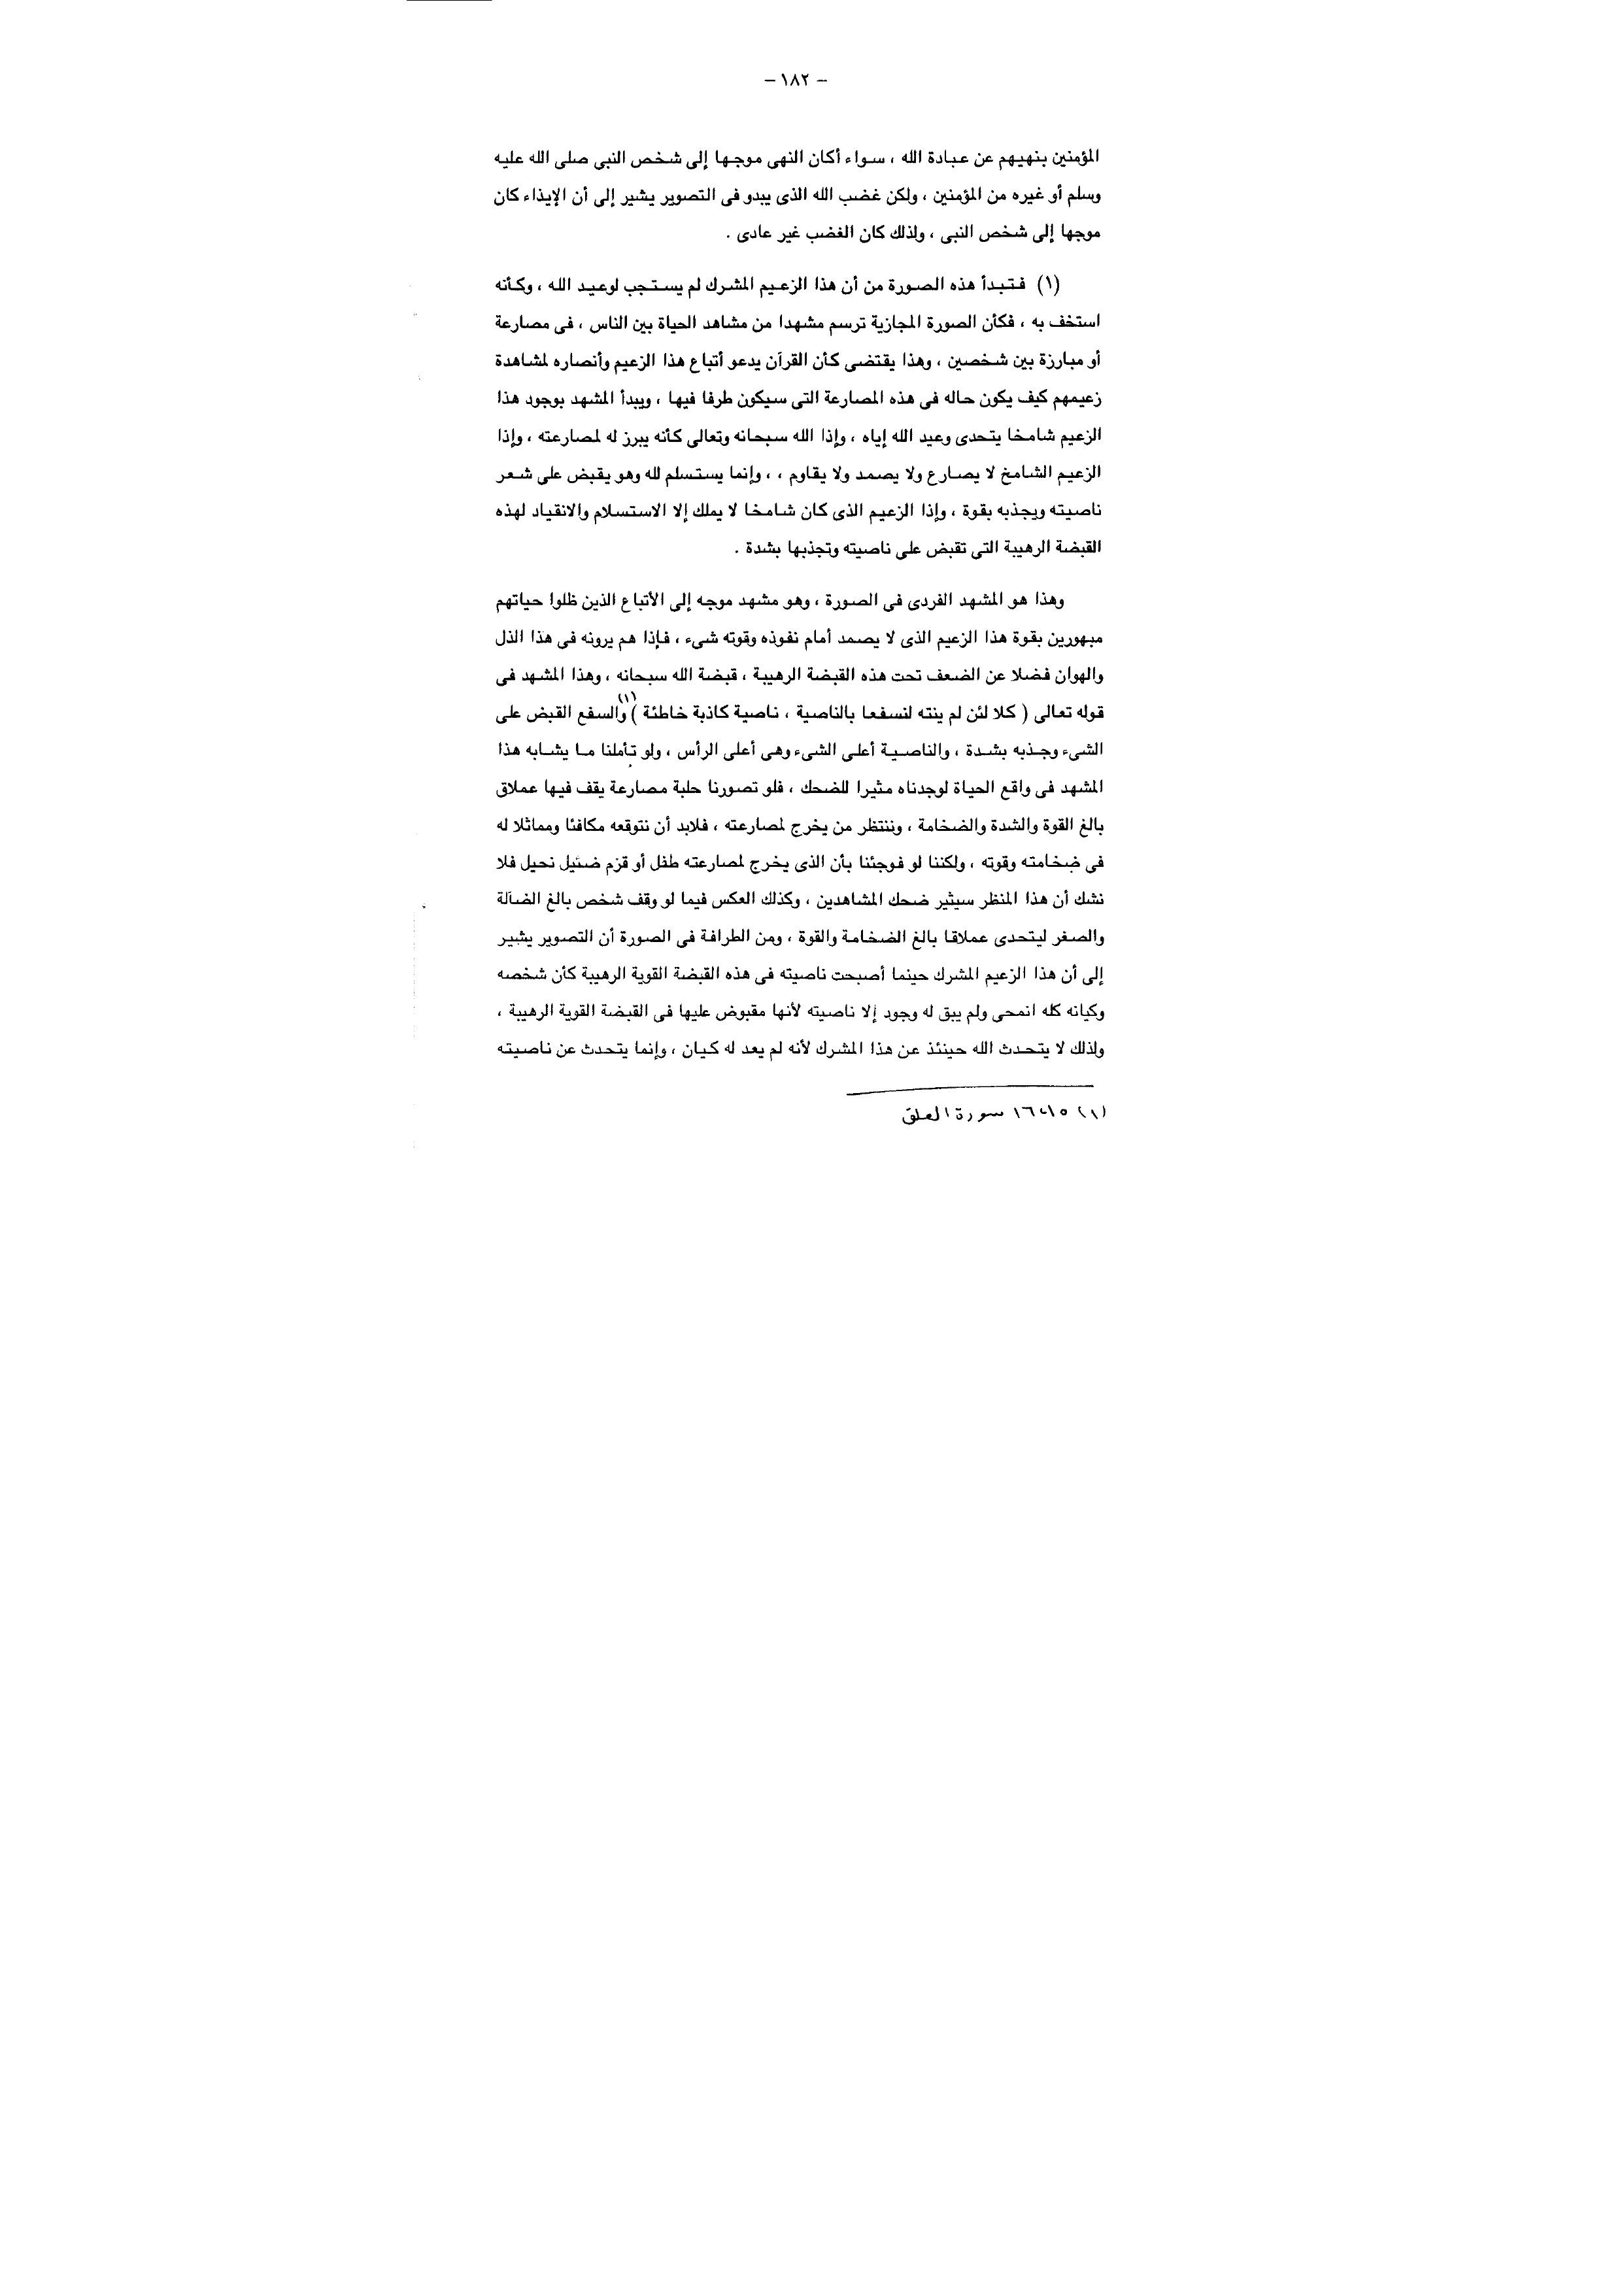 – ١٨٢ –
المؤمنين بنهيهم عن عبادة الله ، سواء أكان النهى موجها إلى شخص النبى صلى الله عليه
وسلم أو غيره من المؤمنين ، ولكن غضب الله الذى يبدو فى التصوير يشير إلى أن الإيذاء كان
موجها إلى شخص النبى ، ولذلك كان الغضب غير عادى .
(١) فتبدأ هذه الصورة من أن هذا الزعيم المشرك لم يستجب لوعيد الله ، وكأنه
استخف به ، فكأن الصورة المجازية ترسم مشهدا من مشاهد الحياة بين الناس ، فى مصارعة
أو مبارزة بين شخصين ، وهذا يقتضى كأن القرآن يدعو أتباع هذا الزعيم وأنصاره لمشاهدة
زعيمهم كيف يكون حاله فى هذه المصارعة التى سيكون طرفا فيها ، ويبدأ المشهد بوجود هذا
الزعيم شامخا يتحدى وعيد الله إياه ، وإذا الله سبحانه وتعالى كأنه يبرز له لمصارعته ، وإذا
الزعيم الشامخ لا يصارع ولا يصمد ولا يقاوم ، ، وإنما يستسلم لله وهو يقبض على شعر
ناصيته ويجذبه بقوة ، وإذا الزعيم الذى كان شامخا لا يملك إلا الاستسلام والانقياد لهذه
القبضة الرهيبة التى تقبض على ناصيته وتجذبها بشدة .
وهذا هو المشهد الفردى فى الصورة ، وهو مشهد موجه إلى الأتباع الذين ظلوا حياتهم
مبهورين بقوة هذا الزعيم الذى لا يصمد أمام نفوذه وقوته شىء ، فإذا هم يرونه فى هذا الذل
والهوان فضلا عن الضعف تحت هذه القبضة الرهيبة ، قبضة الله سبحانه ، وهذا المشهد فى
قوله تعالى ( كلا لئن لم ينته لنسفعا بالناصية ، ناصية كاذبة خاطئة )(١) والسفع القبض على
الشىء وجذبه بشدة ، والناصية أعلى الشىء وهى أعلى الرأس ، ولو تأملنا ما يشابه هذا
المشهد فى واقع الحياة لوجدناه مثيرا للضحك ، فلو تصورنا حلبة مصارعة يقف فيها عملاق
بالغ القوة والشدة والضخامة ، وننتظر من يخرج لمصارعته ، فلابد أن نتوقعه مكافئا ومماثلا له
فى ضخامته وقوته ، ولكننا لو فوجئنا بأن الذى يخرج لمصارعته طفل أو قزم ضئيل نحيل فلا
نشك أن هذا المنظر سيثير ضحك المشاهدين ، وكذلك العكس فيما لو وقف شخص بالغ الضآلة
والصغر ليتحدى عملاقا بالغ الضخامة والقوة ، ومن الطرافة فى الصورة أن التصوير يشير
إلى أن هذا الزعيم المشرك حينما أصبحت ناصيته فى هذه القبضة القوية الرهيبة كأن شخصه
وكيانه كله انمحى ولم يبق له وجود إلا ناصيته لأنها مقبوض عليها فى القبضة القوية الرهيبة ،
ولذلك لا يتحدث الله حينئذ عن هذا المشرك لأنه لم يعد له كيان ، وإنما يتحدث عن ناصيته
(١) ١٥، ١٦ سورة العلق